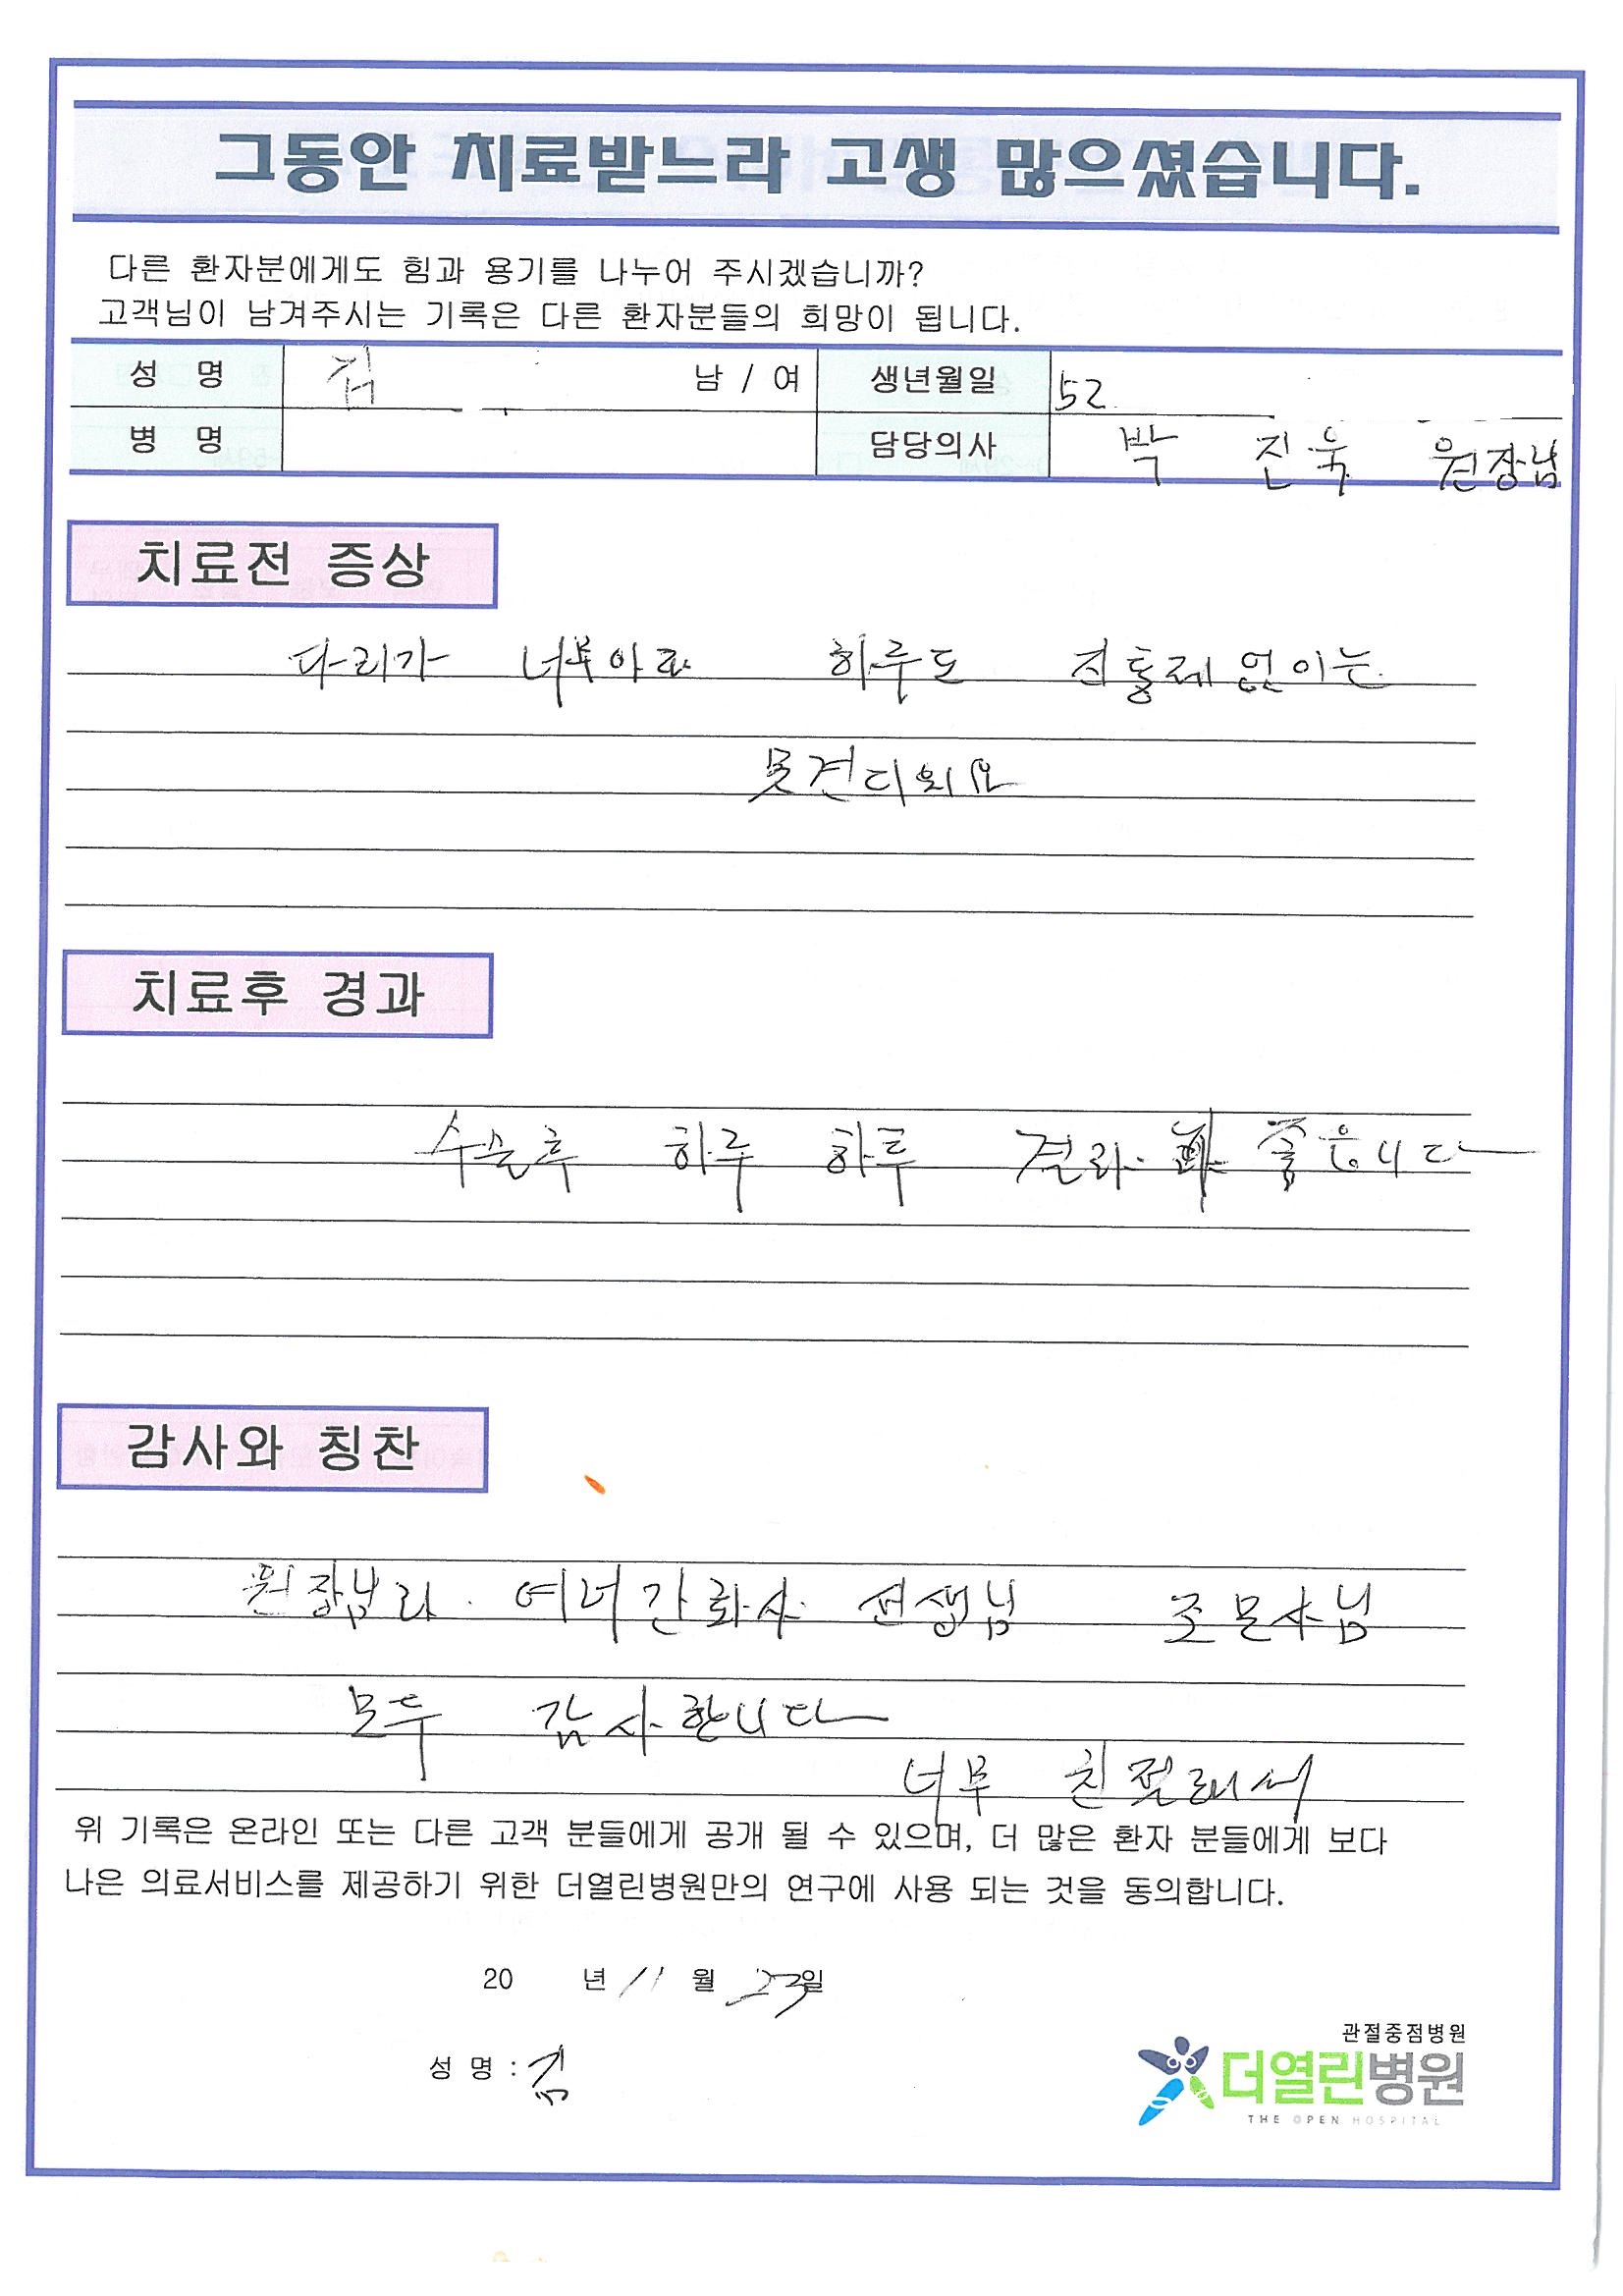 그동안 치료받느라 고생 많으셨습니다.
다른 환자분에게도 힘과 용기를 나누어 주시겠습니까?
고객님이 남겨주시는 기록은 다른 환자분들의 희망이 됩니다.
성 명 김 남 / 여 생년월일 52
병 명 담당의사 박 진욱 원장님
치료전 증상
다리가 너무아포 하루도 진통제없이는
못견디외요
치료후 경과
수술후 하루 하루 결과 좋읍니다
감사와 칭찬
원장님과 여너간화사 선생님 조문사님
모두 감사합니다
너무 친절해서
위 기록은 온라인 또는 다른 고객 분들에게 공개 될 수 있으며, 더 많은 환자 분들에게 보다
나은 의료서비스를 제공하기 위한 더열린병원만의 연구에 사용 되는 것을 동의합니다.
20 년 11 월 23일
성 명 : 김
관절중점병원
더열린병원
THE OPEN HOSPITAL